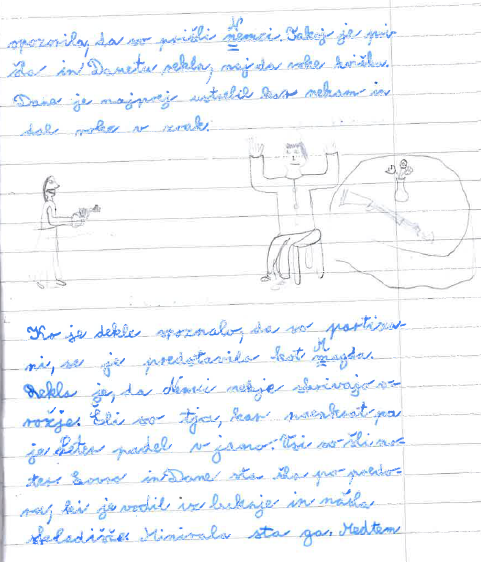 opozorila, da so prišli nemci. Takoj je pri-
šla in Danetu rekla, naj da roke kvišku.
Dane je najprej ustrelil kar nekam in
dal roke v zrak.
Ko je dekle spoznalo, da so partiza-
ni, se je predstavila kot magda.
Rekla je, da Nemci nekje skrivajo o-
rožje. Šli so tja, kar naenkrat pa
je Peter padel v jamo. Vsi so šli no-
ter. in Dane sta šla po predo-
ru, ki je vodil iz luknje in našla
skladišče. Minirala sta ga. Medtem